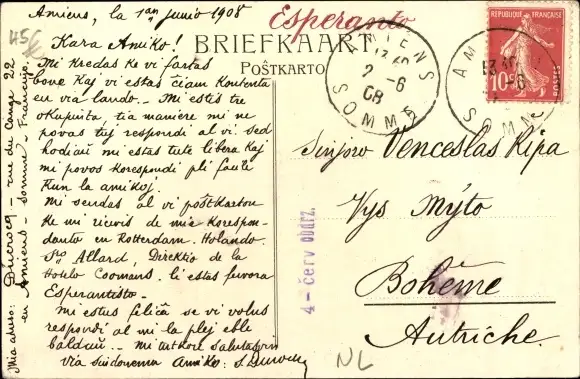 Amiens, la 1an Junio 1908
Esperanto
Kara Amiko!
BRIEFKAART
POSTKARTO
Mi kredas ke vi fartas
bone kaj vi estas ĉiam kontenta
en via lando.- Mi estis tre
okupita, tia maniere mi ne
povas tuj respondi al vi sed
hodiaŭ mi estas tute libera kaj
mi povos korespondi pli facile
kun la amikoj.
Mi sendas al vi poŝtkarton
ke mi ricevis de mia korespon-
danto en Rotterdam. Holando.
Sro Allard, Direktio de la
Hotelo Coomans. li estas fervora
Esperantisto.-
Mi estus feliĉa se vi volus
respondi al mi la plej eble
baldaŭ.- Mi tutkore salutas vin
Via sindonema Amiko: S. Ducrocq
Mia adreso: Ducrocq - rue du Cange 22
en Amiens - Somme - Francujo.
45€
AMIENS
13 40
2 - 6
08
SOMME
AMIENS
13 40
- 6
SOMME
REPUBLIQUE FRANÇAISE
10c
POSTES
Sinjoro Venceslas Kipa
Vys Mýto
Bohême
Autriche.
4 - Červ obdrž.
NL